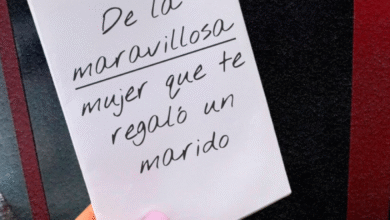 De la
maravillosa
mujer que te
regaló un
marido